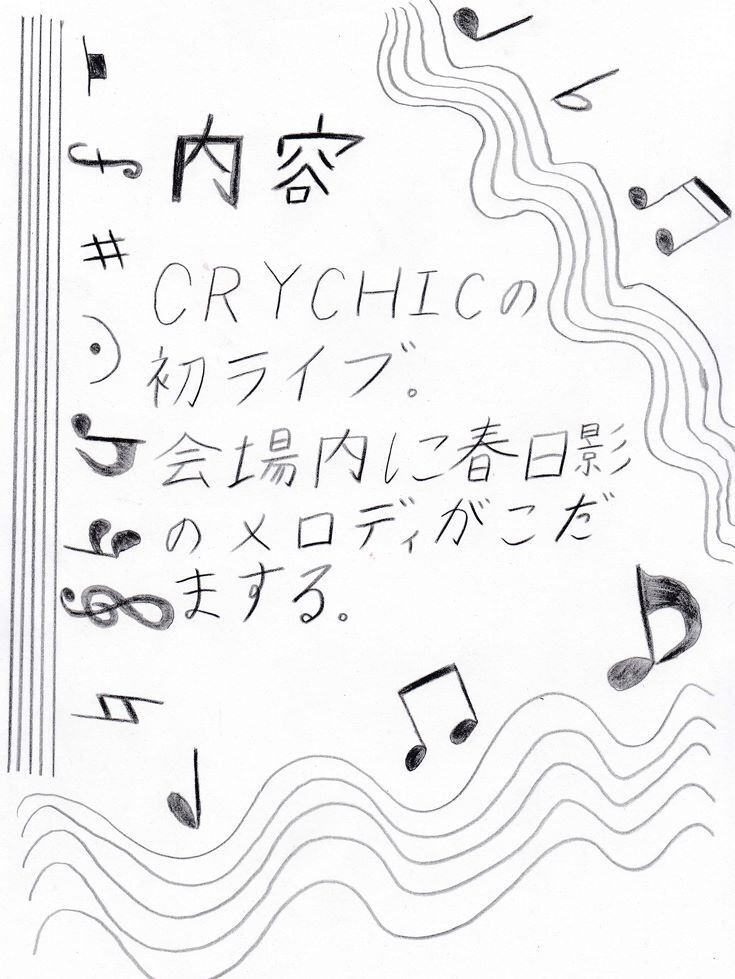 内容
CRYCHICの
初ライブ。
会場内に春日影
のメロディがこだ
まする。